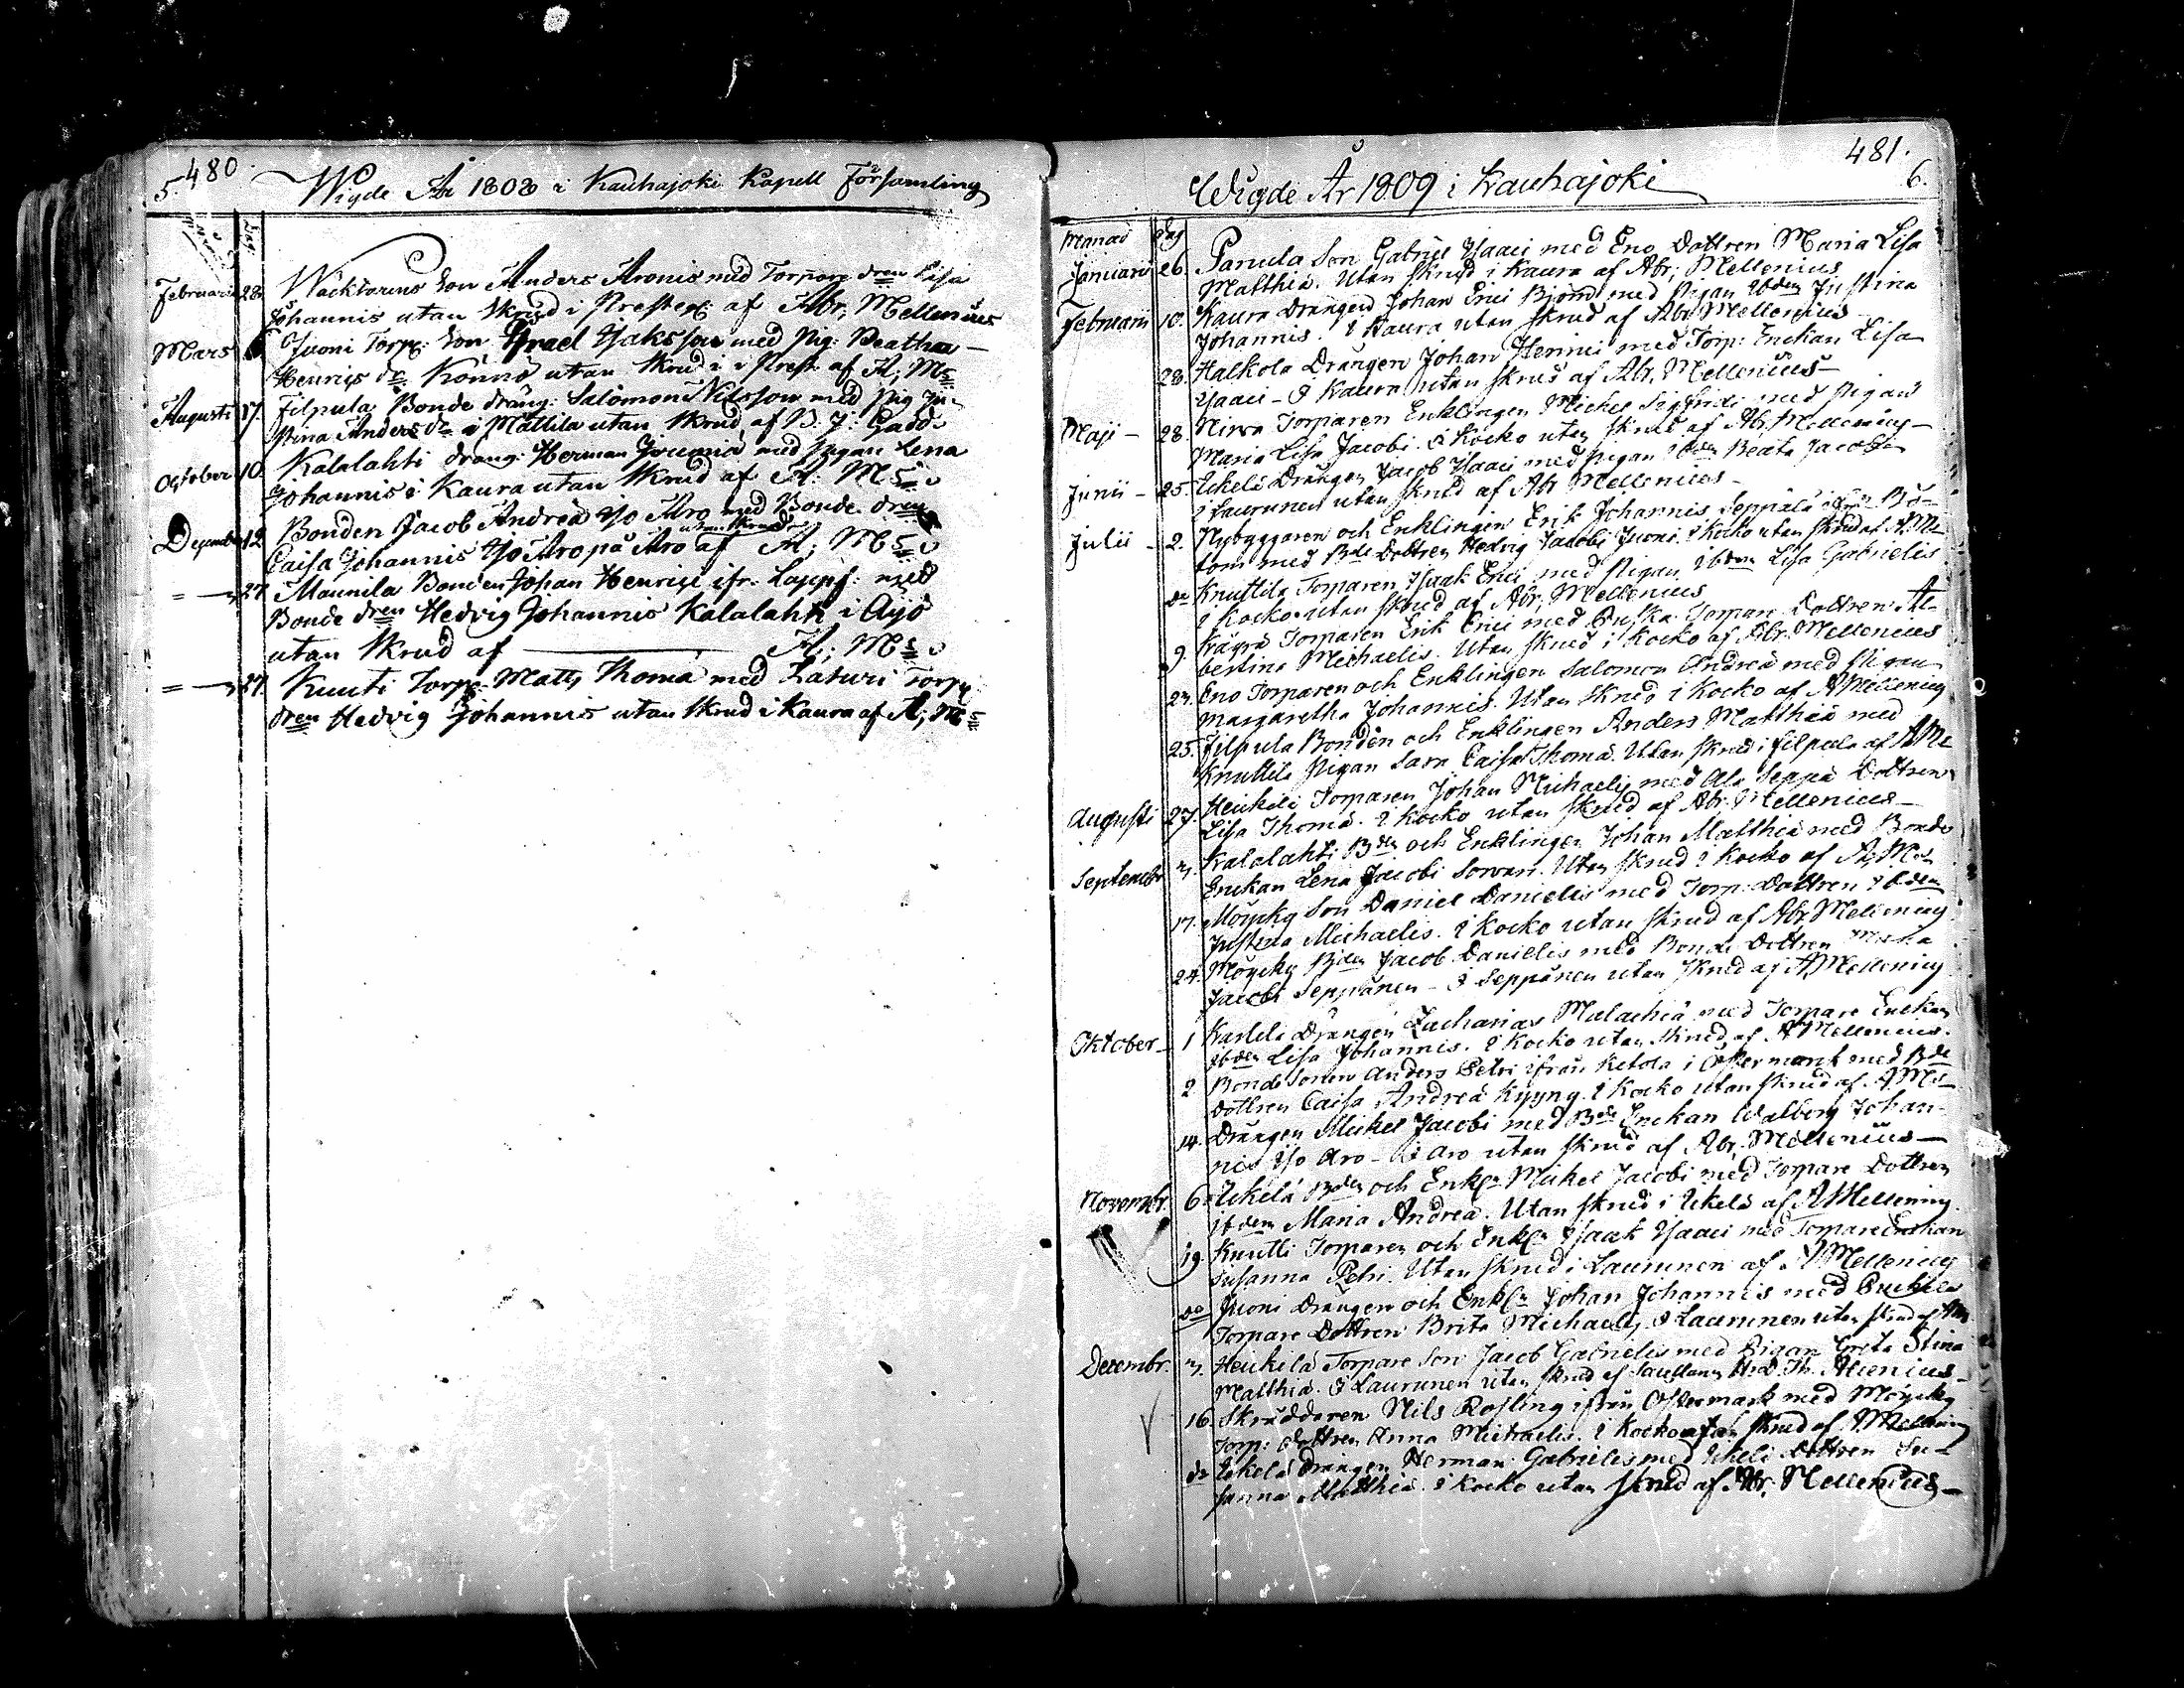 480
5.
Wigde År 1808 i Kauhajoki Kapell Församling
Dag
Februarii 28. Wäcktarens Son Anders Aronis med Torpare dren Lisa
Johannis utan Skrud i af Abr; Mellenius
Mars 6 Juoni Torp: Son Israel Isaksson med Pig: Beatha
Henrics dr Könnö utan Skrud i af A; Ms
Augusti 17. Filpula Bonde dräng: Salomon Nilsson med Pig Ju-
stina Anders dr i Mattila utan Skrud af B. J: Gadd
October 10. Kalalahti dräng: Herman med Pigan Lena
Johannis i Kaura utan Skrud af A: Ms
December 12 Bonden Jacob Andreä Yso Aro med Bonde dren
utan Skrud
Caisa Johannis Yso Aro på Aro af A; Ms
= 27. Maunila Bonden Johan Henrici ifr. Lappf: med
Bonde dren Hedvig Johannis Kalalahti i Äijö
utan Skrud af A; Ms
= 27. Knuti Torp: Matts Thomä med Laturi Torp:
dren Hedvig Johannis utan Skrud i Kaura af A; Ms
481.
6.
Wigde År 1809 i Kauhajoki
Månad Dag
Januarii 26. Panula Son Gabriel Isaaci med Eno Dottren Maria Lisa
Matthiä. Utan Skrud i Kaura af Abr; Mellenius
Februarii 10. Kaura Drängen Johan Erici Björn med Pigan ibdem Justina
Johannis. I Kaura utan Skrud af Abr Mellenius
28. Halkola Drängen Johan Henrici med Torp: Enckan Lisa
Isaaci - I Kaura utan Skrud af Abr. Mellenius
Maji - 28. Nirva Torparen Enklingen Michel Sigfridi med Pigan
Maria Lisa Jacobi. I Kocko utan Skrud af Abr. Mellenius
Junii - 25. Ickelä Drängen Jacob Isaaci med Pigan ibdem Beata Jacobi
I Laurunen utan Skrud af Abr Mellenius
Julii - 2. Nybyggaren och Enklingen Erik Johannis Seppälä ifrån Bö-
tom med Bde Dottren Hedvig Jacobi Juoni. I Kocko utan Skrud af A Ms
do Knuttila Torparen Isaak Erici med Pigan ibdem Lisa Gabrielis
I Kocko utan Skrud af Abr; Mellenius
9. Käyrä Torparen Erik Erici med Torpare Dottren Al-
bertina Michaelis. Utan Skrud i Kocko af Abr. Mellenius
23. Eno Torparen och Enklingen Salomon Andreä med Pigan
Margaretha Johannis. Utan Skrud i Kocko af A Mellenius
25. Filpula Bonden och Enklingen Anders Matthiä med
Knuttila Pigan Sara Caisa Thomä. Utan Skrud i Filpula af A Ms
Augusti 27. Heickilä Torparen Johan Michaelis med Ala Seppä Dottren
Lisa Thomä. I Kocko utan Skrud af Abr. Mellenius
Septembr 3. Kalalahti Bden och Enklingen Johan Matthiä med Bonde
Enckan Lena Jacobi Sorvari. Utan Skrud i Kocko af A; Ms
17. Möycky Son Daniel Danielis med Torp. Dottren ibdem
Justina Michaelis. I Kocko utan Skrud af Abr. Mellenius
24. Möycky Bden Jacob Danielis med Bonde Dottren Maria
Jacobi Seppänen - I Seppänen utan Skrud af A Mellenius
Oktober - 1 Karhila Drängen Zacharias Malachiä med Torpare Enckan
ibdem Lisa Johannis. I Kocko utan Skrud af A Mellenius.
2 Bonde Sonen Anders Petri ifrån Ketola i Östermark med Bde
Dottren Caisa Andreä Kyyny. I Kocko utan Skrud af A Ms
14. Drängen Mickel Jacobi med Bde Enckan Walborg Johan-
nis Yso Aro - I Aro utan Skrud af Abr. Mellenius
Novembr. 6 Ickelä Bden och Enkln Mickel Jacobi med Torpare Dottren
ibdem Maria Andreä. Utan Skrud i Ickelä af A Mellenius.
19. Knutti Torparen och Enkln Isaak Isaaci med Torpare Enckan
Susanna Petri. Utan Skrud i Laurunen af A Mellenius
do Juoni Drängen och Enkln Johan Johannis med
Torpare Dottren Brita Michaelis. I Laurunen utan Skrud af A Ms
Decembr. 3. Heickilä Torpare Son Jacob Gabrielis med Pigan Greta Stina
Matthiä. I Laurunen utan Skrud af
16. Skräddaren Nils Rosling ifrån Östermark med Möycky
Torp: Dottren Anna Michaelis. I Kocko utan Skrud af A Mellenius
do Eskelä Drängen Herman Gabrielis med Ickelä Dottren Su-
sanna Matthiä. I Kocko utan Skrud af Abr. Mellenius